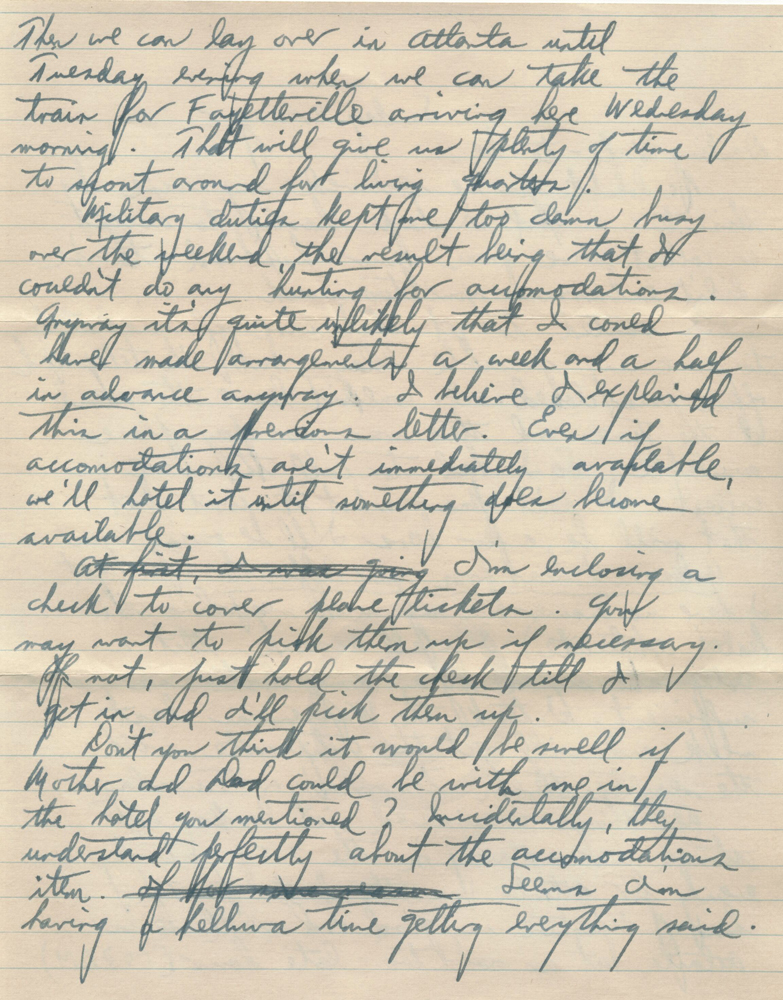 Then we can lay over in Atlanta until
Tuesday evening when we can take the
train for Fayetteville arriving here Wednesday
morning. That will give us plenty of time
to scout around for living quarters.
Military duties kept me too damn busy
over the weekend, the result being that I
couldn't do any hunting for accomodations.
Anyway it's quite unlikely that I could
have made arrangements a week and a half
in advance anyway. I believe I explained
this in a previous letter. Even if
accomodations aren't immediately available,
we'll hotel it until something does become
available.
At first, I was going I'm enclosing a
check to cover plane tickets. You
may want to pick them up if necessary.
If not, just hold the check till I
get in and I'll pick them up.
Don't you think it would be swell if
Mother and Dad could be with me in
the hotel you mentioned? Incidentally, they
understand perfectly about the accomodations
item. If for some reason Seems I'm
having a helluva time getting everything said.